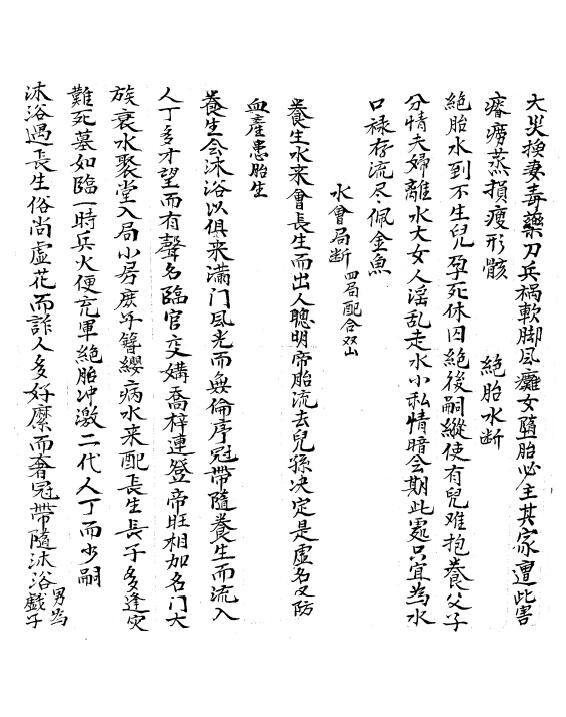 大災換妻毒藥刀兵禍軟脚风癱女墮胎必主其家遭此害
瘡癆蒸損瘦形骸
絕胎水断
絕胎水到不生兒孕死休囚絕後嗣縱使有兒难抱養父子
分情夫婦離水大女人淫乱走水小私情暗会期此處只宜為水
口禄存流尽佩金魚
水會局断 四局配合双山
養生水来會長生而出人聰明帝胎流去兒孫决定是虛名又防
血產患胎生
養生会沐浴以俱来满门风光而無倫序冠帶隨養生而流入
人丁多才望而有聲名臨官交媾喬梓連登帝旺相加名门大
族衰水聚堂入局小房庶子簪纓病水来配長生長子多逢灾
難死墓如臨一時兵火便充軍絕胎冲激二代人丁而少嗣
沐浴遇長生俗尚虛花而詐人多好縻而奢冠帶隨沐浴 男為戲子